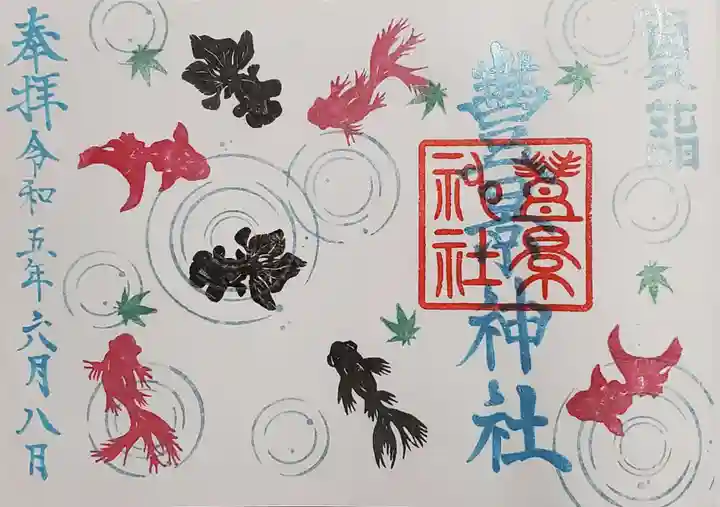 夏詣
豐景神社
豐景
神社
奉拝
令和五年六月八日